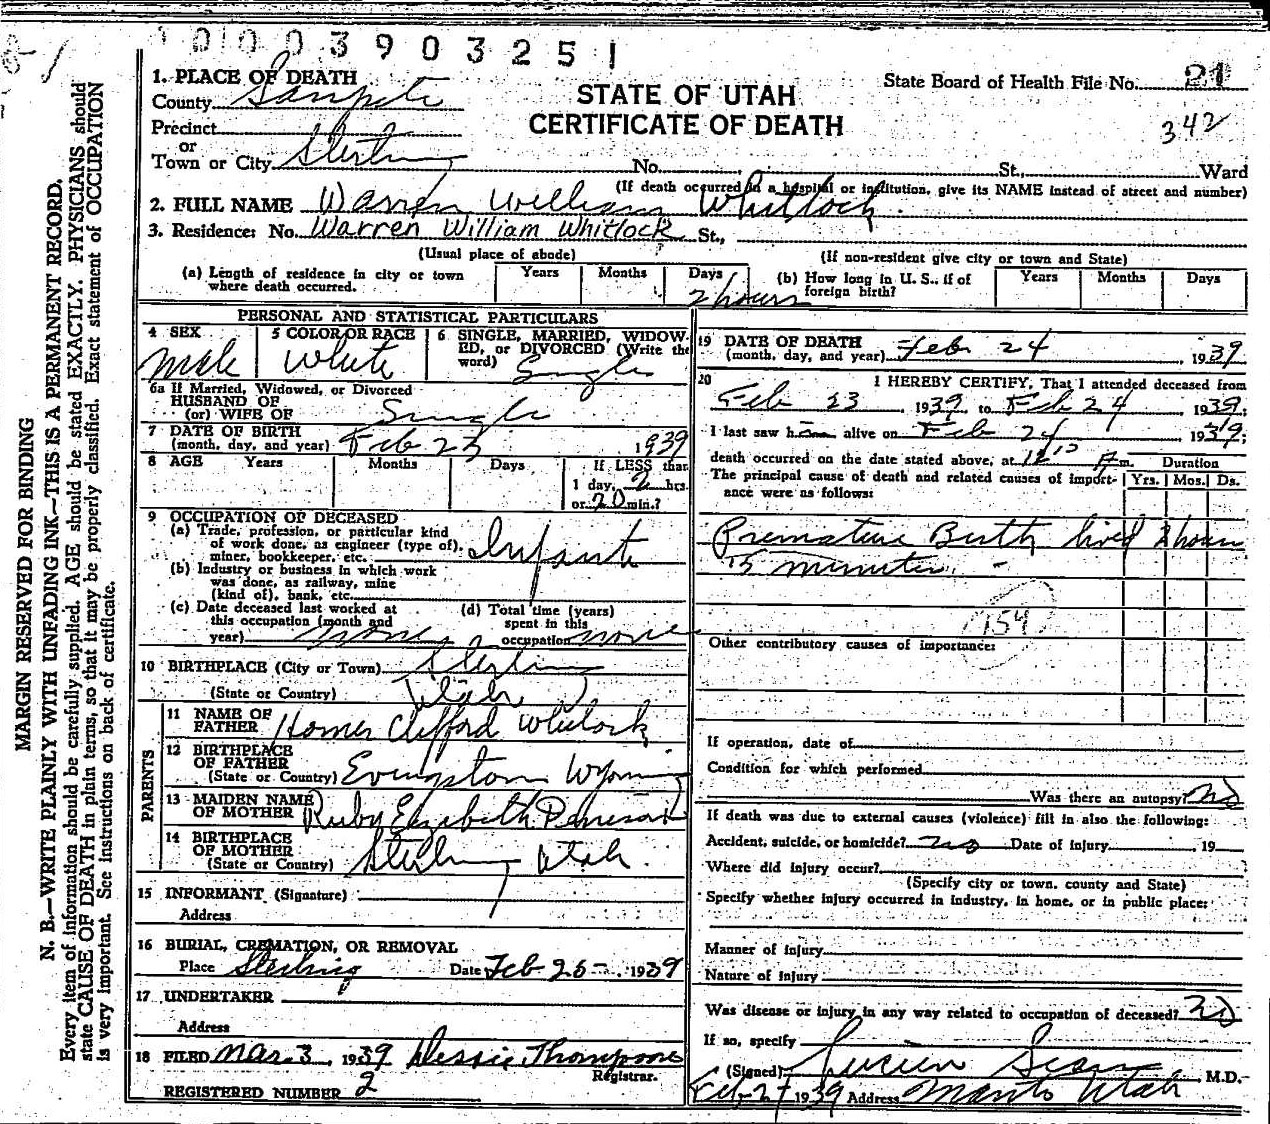 1000390325 1
1. PLACE OF DEATH
County Sanpete
STATE OF UTAH
CERTIFICATE OF DEATH
State Board of Health File No. 21
342
Precinct
or
Town or City Sterling No. St., Ward
(If death occurred in a hospital or institution, give its NAME instead of street and number)
2. FULL NAME Warren William Whitlock.
3. Residence: No. Warren William Whitlock St.,
(Usual place of abode) (If non-resident give city or town and State)
(a) Length of residence in city or town where death occurred. Years Months Days 2 hours
(b) How long in U. S., if of foreign birth? Years Months Days
PERSONAL AND STATISTICAL PARTICULARS
4 SEX Male
5 COLOR OR RACE White
6 SINGLE, MARRIED, WIDOWED, or DIVORCED (Write the word) Single
6a If Married, Widowed, or Divorced
HUSBAND OF
(or) WIFE OF Single
7 DATE OF BIRTH
(month, day, and year) Feb 23 1939
8 AGE Years Months Days If LESS than
1 day, 2 hrs.
or 20 min.?
9 OCCUPATION OF DECEASED
(a) Trade, profession, or particular kind
of work done, as engineer (type of),
miner, bookkeeper, etc. Infant
(b) Industry or business in which work
was done, as railway, mine
(kind of), bank, etc.
(c) Date deceased last worked at
this occupation (month and
year) none
(d) Total time (years)
spent in this
occupation none
10 BIRTHPLACE (City or Town) Sterling
(State or Country) Utah
PARENTS
11 NAME OF
FATHER Homer Clifford Whitlock
12 BIRTHPLACE
OF FATHER
(State or Country) Evingston Wyoming
13 MAIDEN NAME
OF MOTHER Ruby Elizabeth
14 BIRTHPLACE
OF MOTHER
(State or Country) Sterling Utah.
15 INFORMANT (Signature)
Address
16 BURIAL, CREMATION, OR REMOVAL
Place Sterling Date Feb 25 - 1939
17 UNDERTAKER
Address
18 FILED Mar. 3, 1939 Dessie Thompson
Registrar.
REGISTERED NUMBER 2
19 DATE OF DEATH
(month, day, and year) Feb 24 1939
20 I HEREBY CERTIFY, That I attended deceased from
Feb 23 1939, to Feb 24 1939;
I last saw him alive on Feb 24 1939;
death occurred on the date stated above, at 12 15 m. Duration
The principal cause of death and related causes of importance were as follows: Yrs. Mos. Ds.
Premature Birth lived 2 hours
15 minutes. -
154
Other contributory causes of importance:
If operation, date of
Condition for which performed
Was there an autopsy? No
If death was due to external causes (violence) fill in also the following:
Accident, suicide, or homicide? no Date of injury 19
Where did injury occur?
(Specify city or town, county and State)
Specify whether injury occurred in industry, in home, or in public place:
Manner of injury
Nature of injury
Was disease or injury in any way related to occupation of deceased? No
If so, specify
(Signed) Lucien Sears M.D.
Feb 27 1939 Address Manti Utah
MARGIN RESERVED FOR BINDING
N. B.—WRITE PLAINLY WITH UNFADING INK—THIS IS A PERMANENT RECORD.
Every item of information should be carefully supplied. AGE should be stated EXACTLY. PHYSICIANS should
state CAUSE OF DEATH in plain terms, so that it may be properly classified. Exact statement of OCCUPATION
is very important. See instructions on back of certificate.